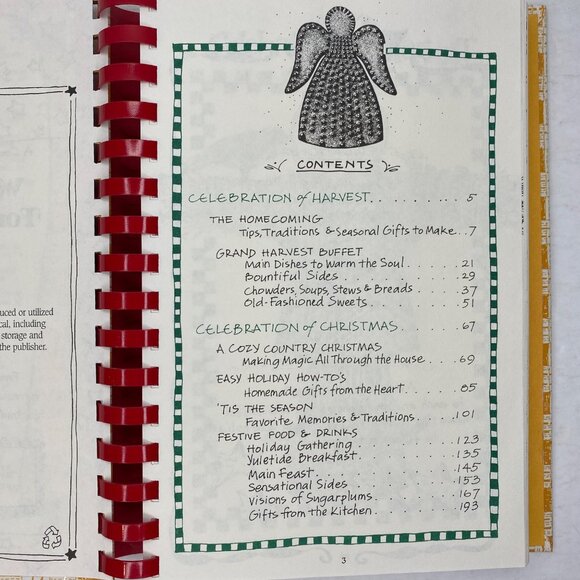 uced or utilized
cal, including
storage and
the publisher.
CONTENTS
CELEBRATION of HARVEST. . . . . . . . . 5
THE HOMECOMING
Tips, Traditions & Seasonal Gifts to Make. . 7
GRAND HARVEST BUFFET
Main Dishes to Warm the Soul . . . . . . 21
Bountiful Sides . . . . . . . . . . . 29
Chowders, Soups, Stews & Breads . . . . . 37
Old-Fashioned Sweets . . . . . . . . . 51
CELEBRATION of CHRISTMAS. . . . . . . 67
A COZY COUNTRY CHRISTMAS
Making Magic All Through the House. . . . 69
EASY HOLIDAY HOW-TO'S
Homemade Gifts from the Heart . . . . . 85
'TIS THE SEASON
Favorite Memories & Traditions. . . . . 101
FESTIVE FOOD & DRINKS
Holiday Gathering . . . . . . . . . . 123
Yuletide Breakfast. . . . . . . . . . 135
Main Feast. . . . . . . . . . . . . 145
Sensational Sides . . . . . . . . . . 153
Visions of Sugarplums. . . . . . . . . 167
Gifts from the Kitchen. . . . . . . . . 193
3